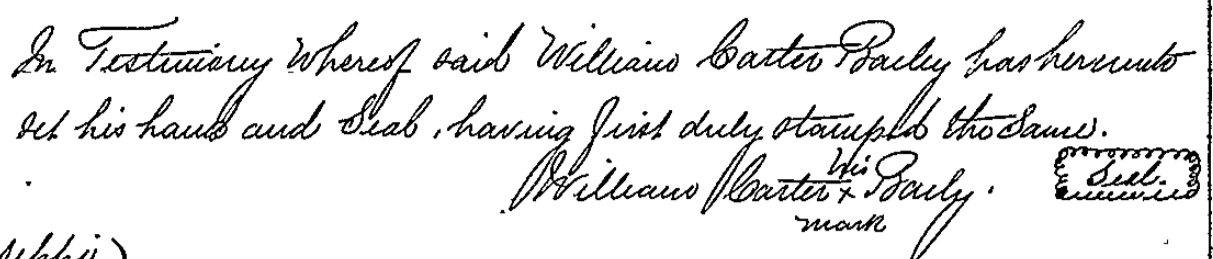 In Testimony Whereof said William Carter Baily has hereunto
set his hand and Seal, having first duly stamped the Same.
his
William Carter x Baily. Seal.
mark